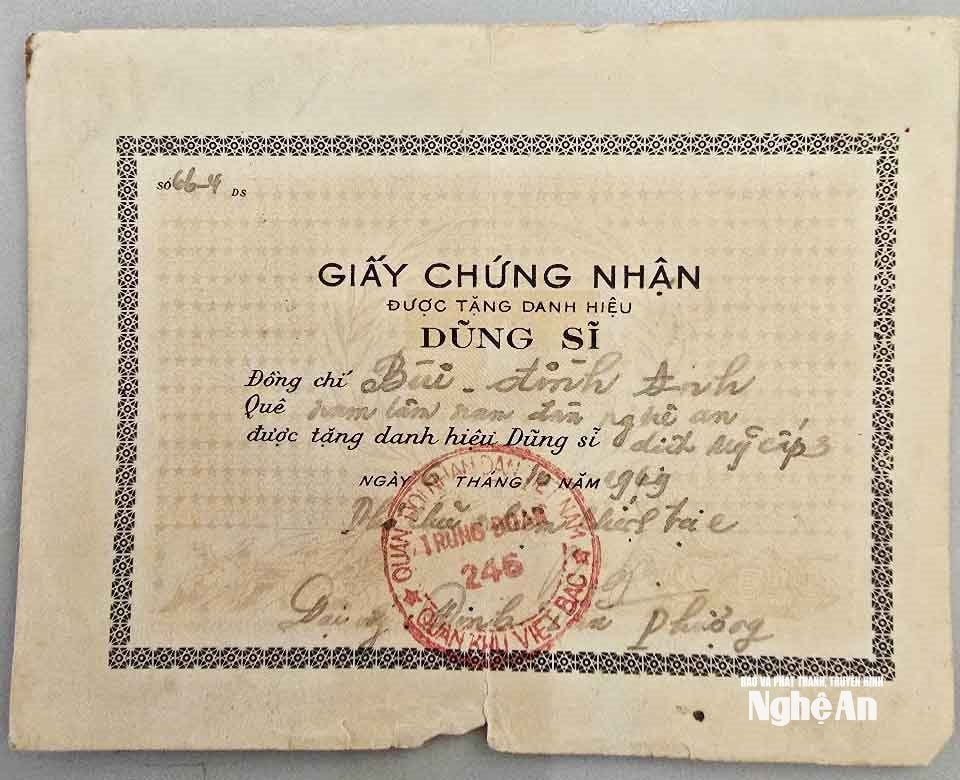 SỐ 66-4 DS
GIẤY CHỨNG NHẬN
ĐƯỢC TẶNG DANH HIỆU
DŨNG SĨ
Đồng chí Bùi - đình Anh
Quê nam tân nam đàn nghệ an
được tặng danh hiệu Dũng sĩ diệt Mỹ cấp 3
NGÀY THÁNG 10 NĂM 1969
QUÂN ĐỘI NHÂN DÂN VIỆT NAM
TRUNG ĐOÀN
246
QUÂN KHU VIỆT BẮC
Đại Phương
BÁO VÀ PHÁT THANH, TRUYỀN HÌNH
Nghệ An